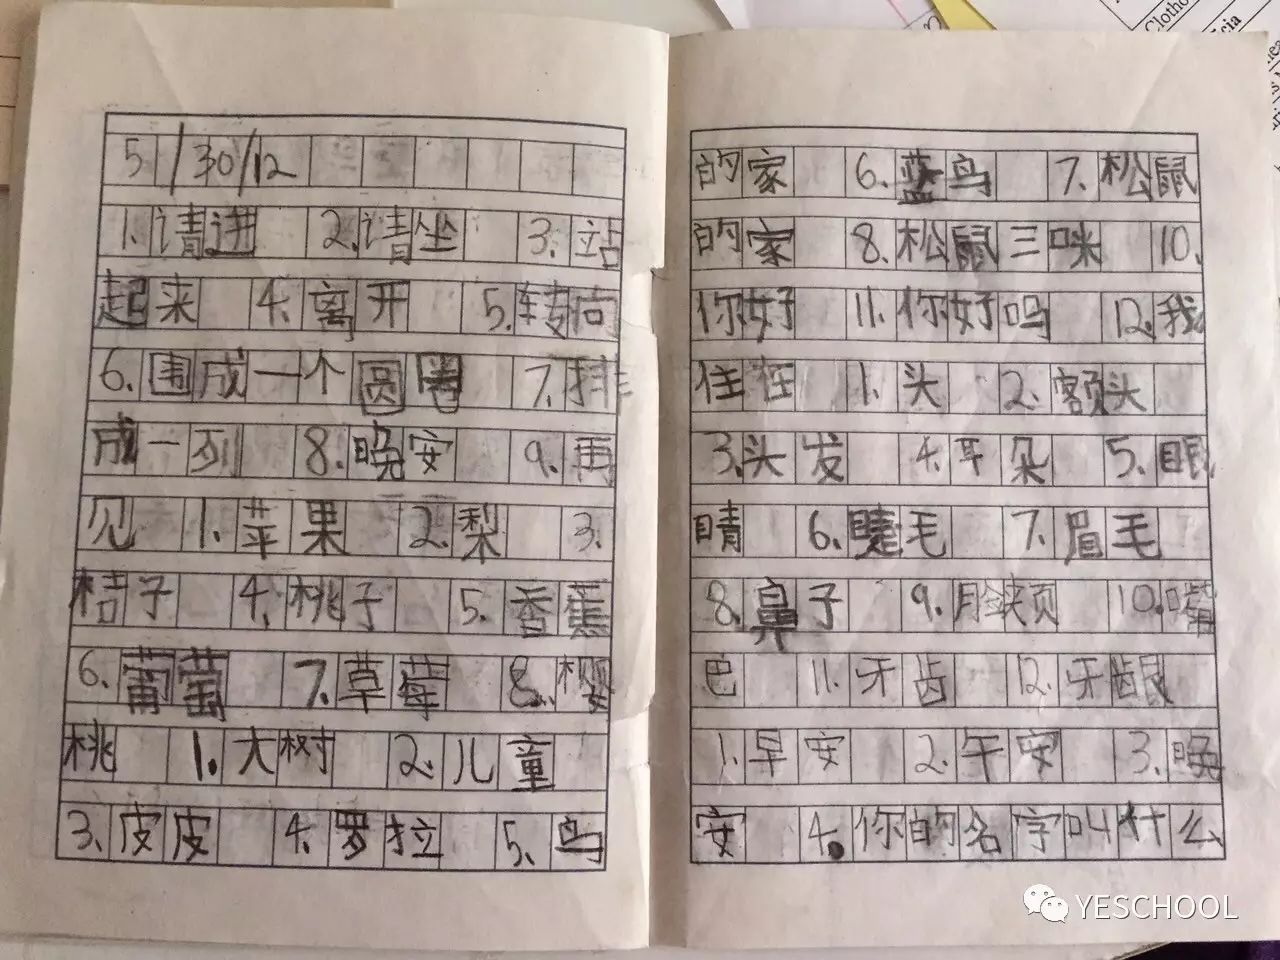 Clotho
cia
5/30/12
1.请进 2.请坐 3.站
起来 4.离开 5.转向
6.围成一个圆圈 7.排
成一列 8.晚安 9.再
见 1.苹果 2.梨 3.
桔子 4.桃子 5.香蕉
6.葡萄 7.草莓 8.樱
桃 1.大树 2.儿童
3.皮皮 4.罗拉 5.鸟
的家 6.蓝鸟 7.松鼠
的家 8.松鼠三咪 10.
你好 11.你好吗 12.我
住在 1.头 2.额头
3.头发 4.耳朵 5.眼
睛 6.睫毛 7.眉毛
8.鼻子 9.脸颊 10.嘴
巴 11.牙齿 12.牙龈
1.早安 2.午安 3.晚
安 4.你的名字叫什么
YESCHOOL